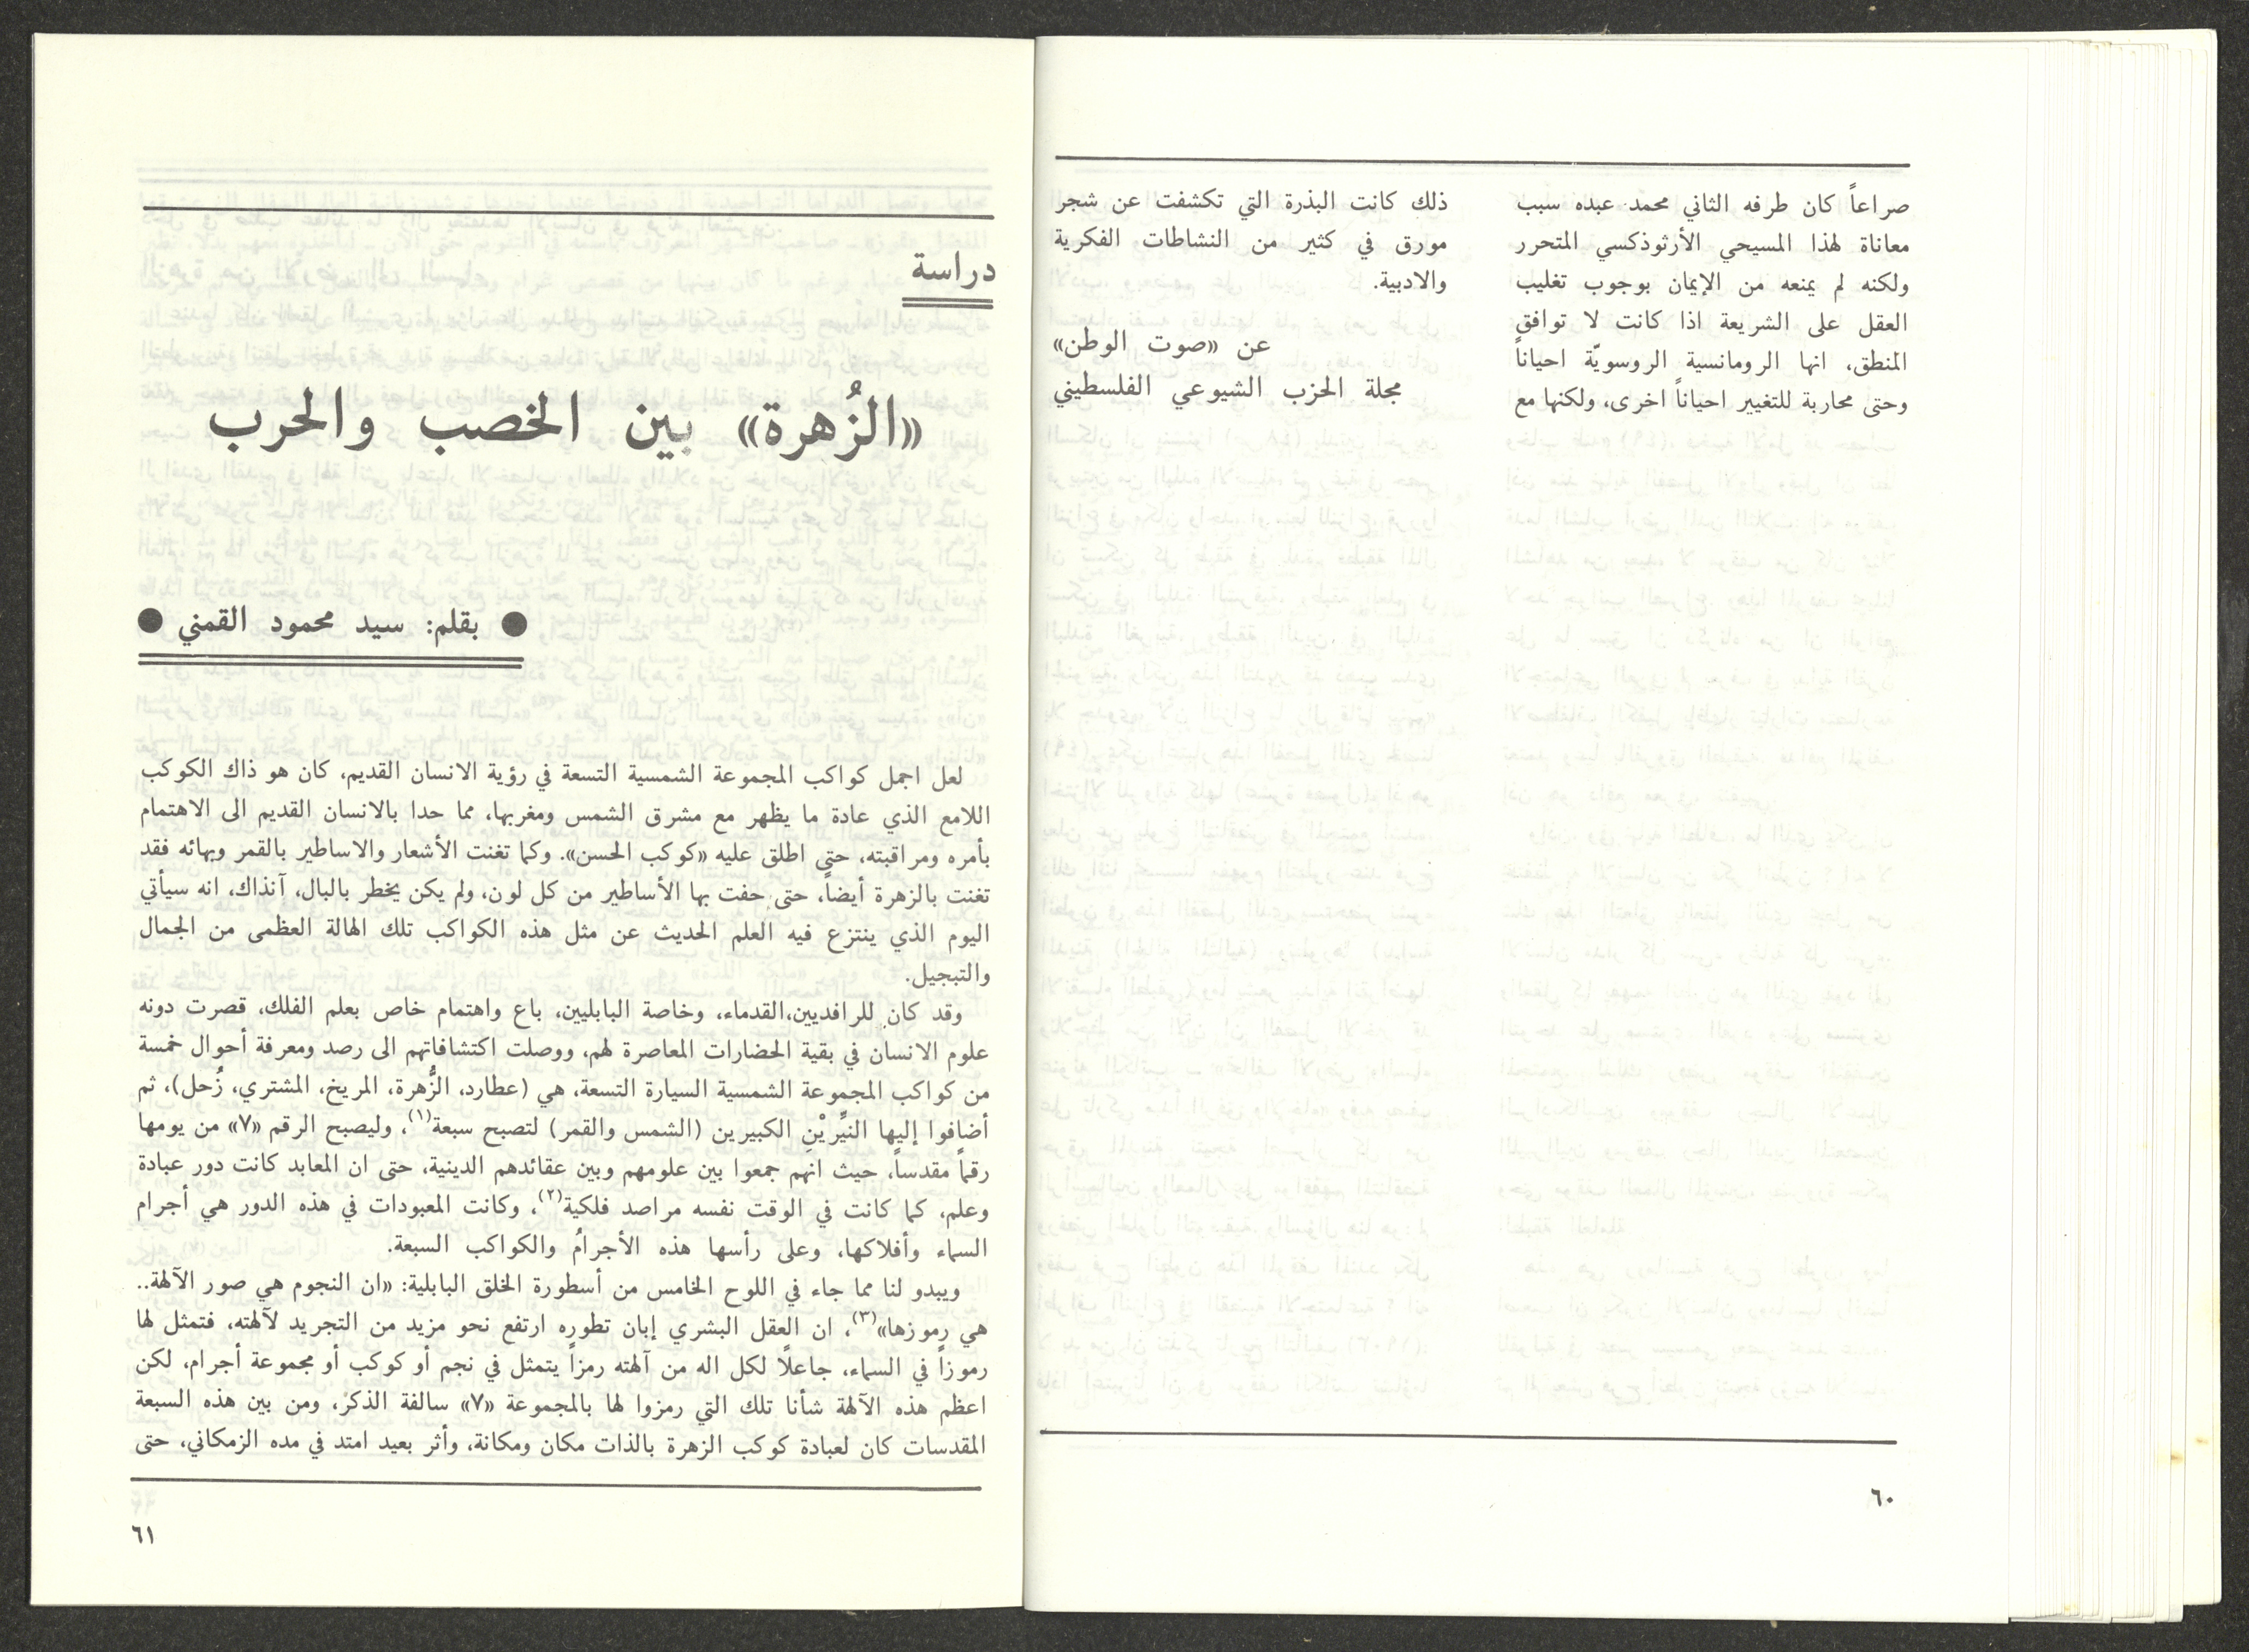 صراعاً كان طرفه الثاني محمد عبده سبب
معاناة لهذا المسيحي الأرثوذكسي المتحرر
ولكنه لم يمنعه من الإيمان بوجوب تغليب
العقل على الشريعة اذا كانت لا توافق
المنطق، انها الرومانسية الروسويّة احياناً
وحتى محاربة للتغيير احياناً اخرى، ولكنها مع
ذلك كانت البذرة التي تكشفت عن شجر
مورق في كثير من النشاطات الفكرية
والادبية.
عن «صوت الوطن»
مجلة الحزب الشيوعي الفلسطيني
٦٠
دراسة
«الزُهرة» بين الخصب والحرب
● بقلم: سيد محمود القمني ●
لعل اجمل كواكب المجموعة الشمسية التسعة في رؤية الانسان القديم، كان هو ذاك الكوكب
اللامع الذي عادة ما يظهر مع مشرق الشمس ومغربها، مما حدا بالانسان القديم الى الاهتمام
بأمره ومراقبته، حتى اطلق عليه «كوكب الحسن». وكما تغنت الأشعار والاساطير بالقمر وبهائه فقد
تغنت بالزهرة أيضاً، حتى حفت بها الأساطير من كل لون، ولم يكن يخطر بالبال، آنذاك، انه سيأتي
اليوم الذي ينتزع فيه العلم الحديث عن مثل هذه الكواكب تلك الهالة العظمى من الجمال
والتبجيل.
وقد كان للرافديين،القدماء، وخاصة البابليين، باع واهتمام خاص بعلم الفلك، قصرت دونه
علوم الانسان في بقية الحضارات المعاصرة لهم، ووصلت اكتشافاتهم الى رصد ومعرفة أحوال خمسة
من كواكب المجموعة الشمسية السيارة التسعة، هي (عطارد، الزُّهرة، المريخ، المشتري، زُحل)، ثم
أضافوا إليها النيِّريْنِ الكبيرين (الشمس والقمر) لتصبح سبعة(١)، وليصبح الرقم «٧» من يومها
رقماً مقدساً، حيث انهم جمعوا بين علومهم وبين عقائدهم الدينية، حتى ان المعابد كانت دور عبادة
وعلم، كما كانت في الوقت نفسه مراصد فلكية(٢)، وكانت المعبودات في هذه الدور هي أجرام
السماء وأفلاكها، وعلى رأسها هذه الأجرامُ والكواكب السبعة.
ويبدو لنا مما جاء في اللوح الخامس من أسطورة الخلق البابلية: «ان النجوم هي صور الآلهة..
هي رموزها»(٣)، ان العقل البشري إبان تطوره ارتفع نحو مزيد من التجريد لآلهته، فتمثل لها
رموزاً في السماء، جاعلًا لكل اله من آلهته رمزاً يتمثل في نجم أو كوكب أو مجموعة أجرام، لكن
اعظم هذه الآلهة شأنا تلك التي رمزوا لها بالمجموعة «٧» سالفة الذكر، ومن بين هذه السبعة
المقدسات كان لعبادة كوكب الزهرة بالذات مكان ومكانة، وأثر بعيد امتد في مده الزمكاني، حتى
٦١